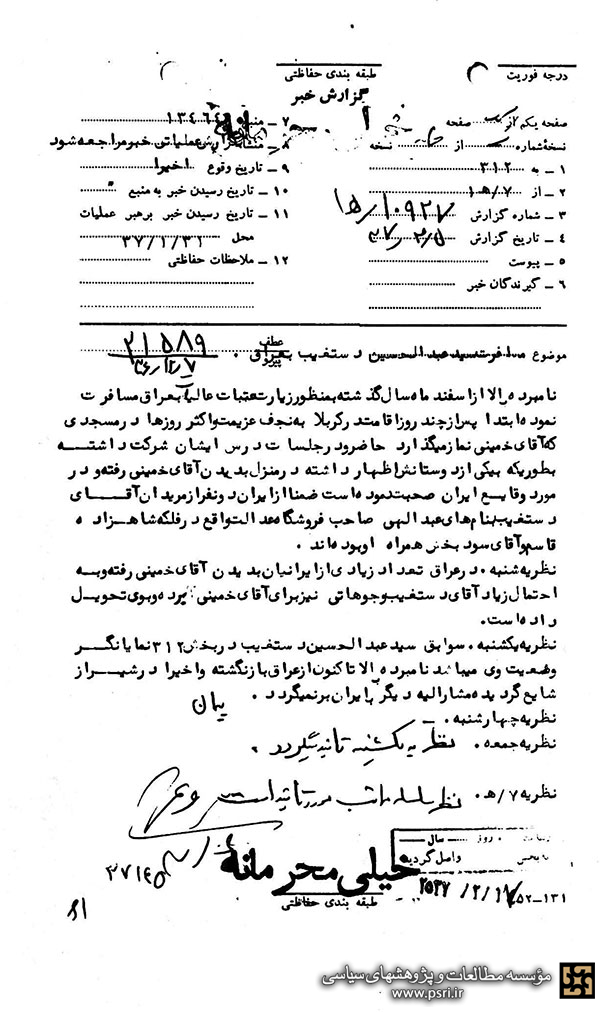 درجه فوریت
طبقه بندی حفاظتی
گزارش خبر
صفحه یکم از یک صفحه
نسخه شماره از نسخه
۱ ـ به ۳۱۲
۲ ـ از ۷/هـ۱
۳ ـ شماره گزارش ۱۰۹۲۷/هـ۱
۴ ـ تاریخ گزارش ۳۷/۲/۵
۵ ـ پیوست
۶ ـ گیرندگان خبر
۷ ـ منبع ۱۳۴۶۴
۸ ـ منشأ
گزارش عملیاتی خبر مراجعه شود
۹ ـ تاریخ وقوع اخیرا
۱۰ ـ تاریخ رسیدن خبر به منبع
۱۱ ـ تاریخ رسیدن خبر برهبر عملیات
محل ۳۷/۱/۳۱
۱۲ ـ ملاحظات حفاظتی
موضوع مسافرت سید عبدالحسین دستغیب بعراق .
عطف
پیرو
۲۱۵۸۹
۳۶/۱۲/۷
نامبرده بالا از اسفند ماه سال گذشته بمنظور زیارت عتبات عالیات بعراق مسافرت
نموده ابتدا پس از چند روز اقامت در کربلا به نجف عزیمت و اکثر روزها در مسجدی
که آقای خمینی نماز میگذارد حاضر و در جلسات درس ایشان شرکت داشتـــه
بطوریکه بیکی از دوستانش اظهار داشته در منزل بدیدن آقای خمینی رفته و در
مورد وقایع ایران صحبت نموده است ضمنا از ایران دو نفر از مریدان آقــــای
دستغیب بنام های عبدالهی صاحب فروشگاه عدالت واقع در فلکه شاهزاده
قاسم و آقای سودبخش همراه او بوده اند .
نظریه شنبه . در عراق تعداد زیادی از ایرانیان بدیدن آقای خمینی رفته و به
احتمال زیاد آقای دستغیب وجوهاتی نیز برای آقای خمینی برده و بوی تحویل
داده است.
نظریه یکشنبه . سوابق سید عبدالحسین دستغیب در بخش ۳۱۲ نمایانگـــر
وضعیت وی میباشد نامبرده بالا تاکنون از عراق بازنگشته و اخیرا در شیـــراز
شایع گردیده مشارالیه دیگر بایران برنمیگردد .
نظریه چهارشنبه .
نظریه جمعه . نظریه یکشنبه تائید میگردد .
نظریه ۷/هـ . نظر سلسله مراتب مورد تائید است
روز سال
به بخش واصل گردید
۲۵۳۷/۲/۱۷
خیلی محرمانه
طبقه بندی حفاظتی
۵۲-۱۳۱
۸۱
مؤسسه مطالعات و پژوهشهای سیاسی
www.psri.ir